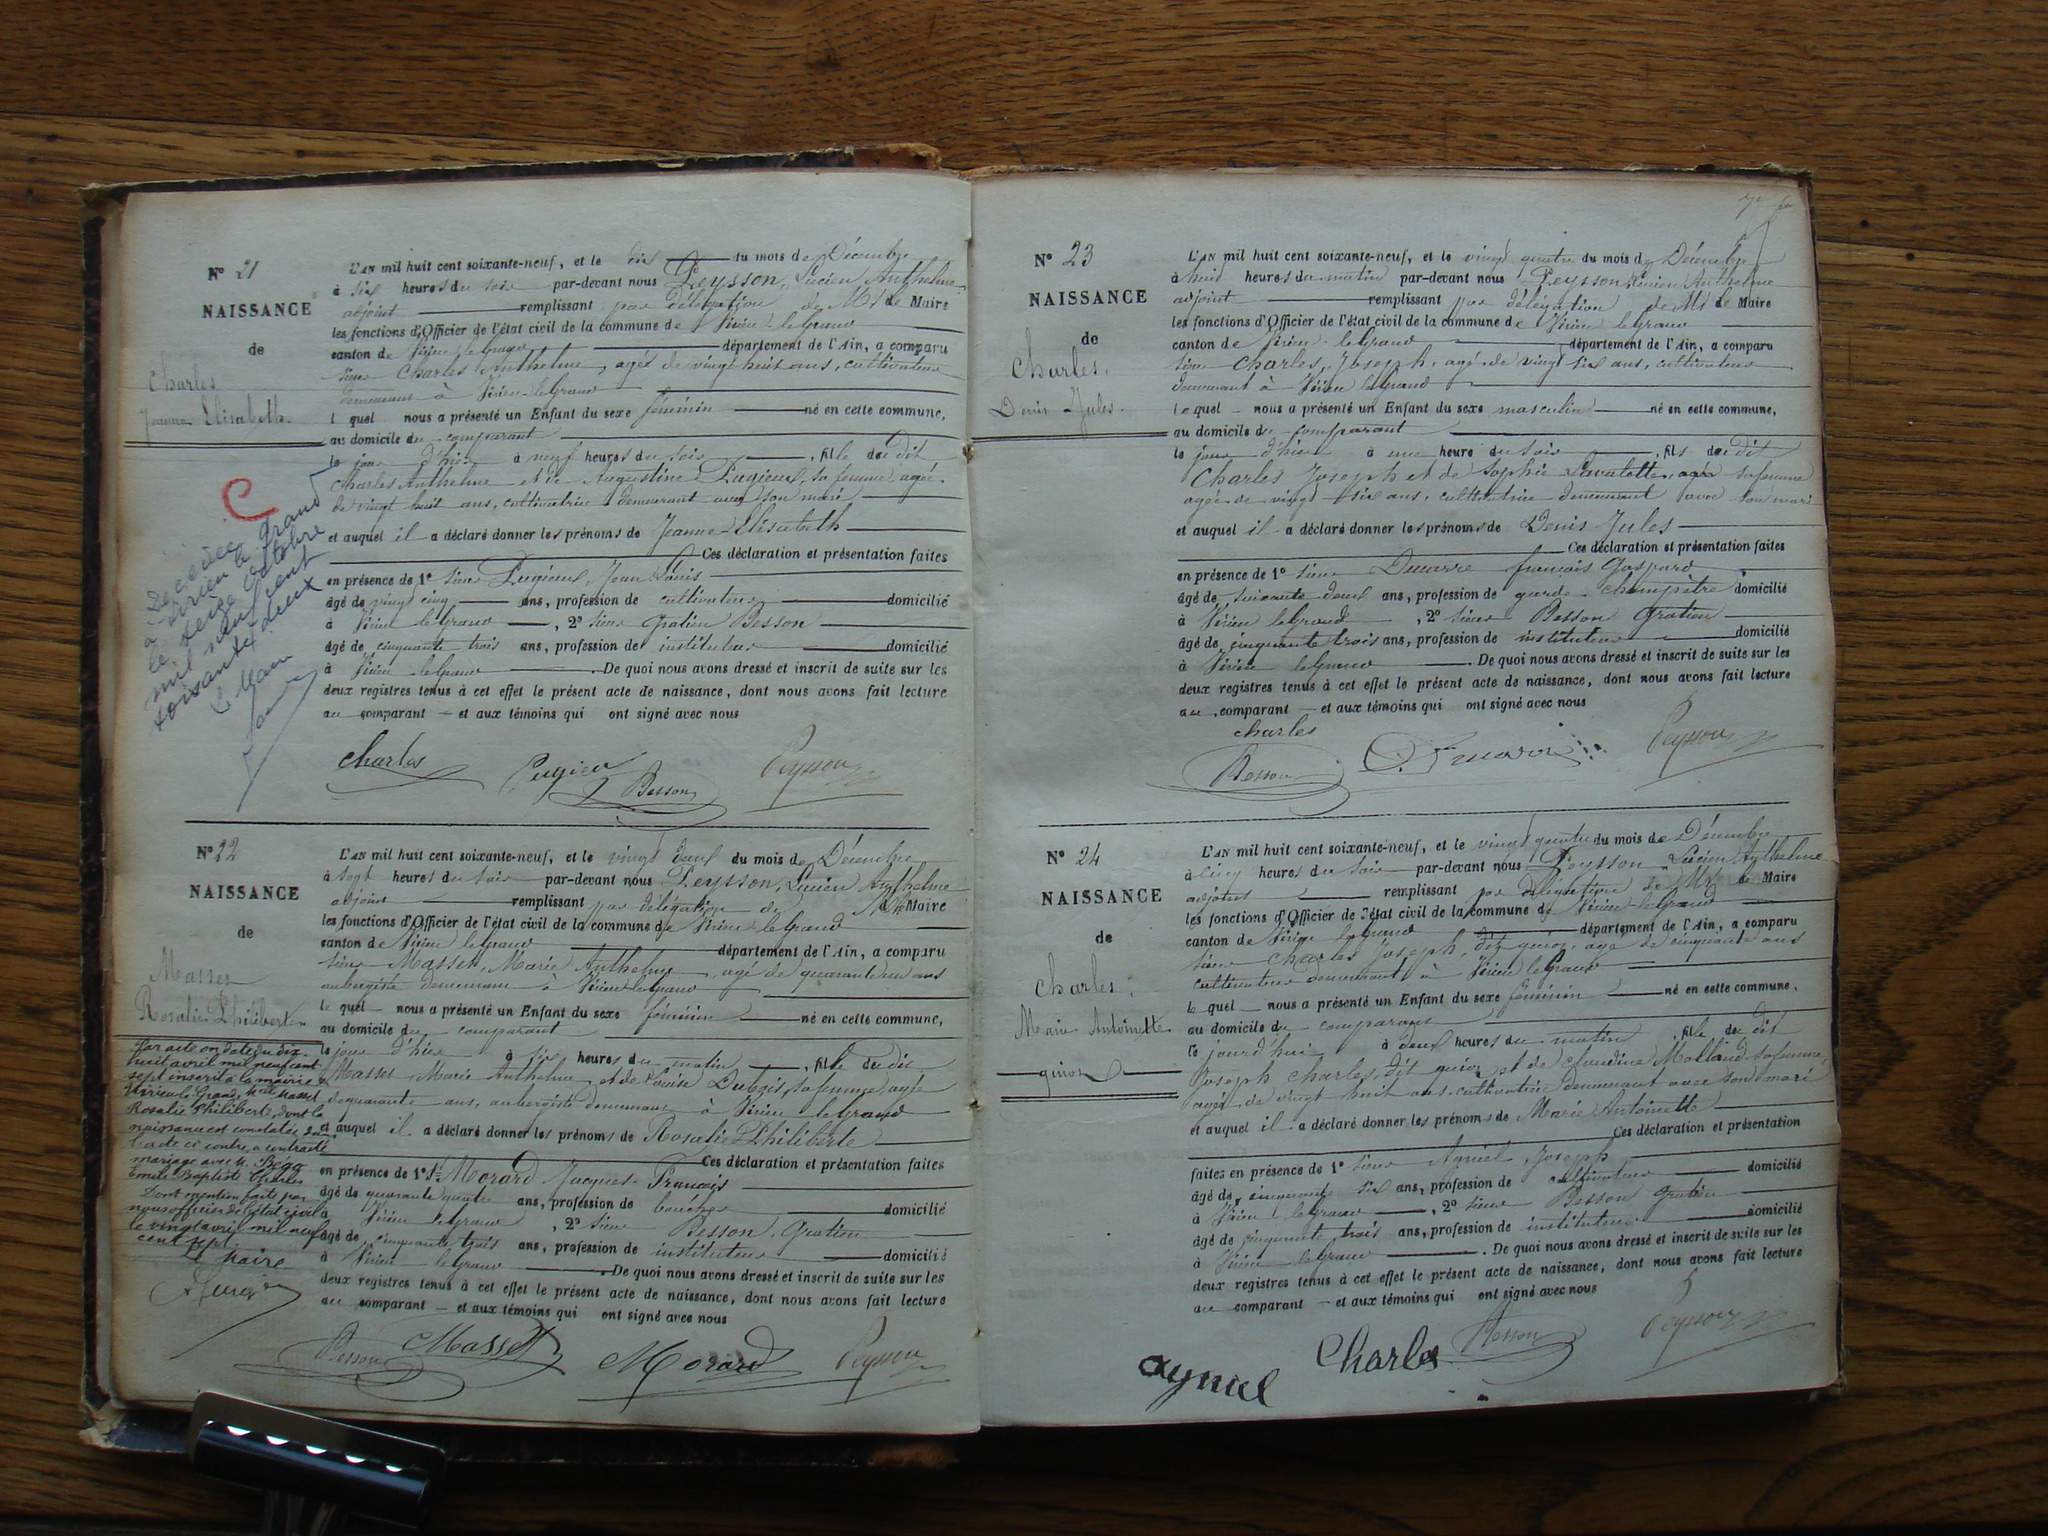 Nº 21
NAISSANCE
de
Charles
Jeanne Elisabeth
L'AN mil huit cent soixante-neuf, et le dix du mois de Décembre
à six heures du soir par-devant nous Peysson, Lucien Anthelme
adjoint remplissant par délégation de Mr le Maire
les fonctions d'Officier de l'état civil de la commune de Virieu-le-Grand
canton de Virieu-le-Grand département de l'Ain, a comparu
sieur Charles Anthelme, agé de vingt huit ans, cultivateur
demeurant à Virieu-le-Grand
lequel nous a présenté un Enfant du sexe féminin né en cette commune,
au domicile du comparant
le jour d'hier à neuf heures du soir, fille du dit
Charles Anthelme et de Augustine Pugieux, sa femme, agée
de vingt huit ans, cultivatrice demeurant avec son mari
et auquel il a déclaré donner les prénoms de Jeanne-Elisabeth
Ces déclaration et présentation faites
en présence de 1º sieur Pugieux, Jean Louis
âgé de vingt cinq ans, profession de cultivateur domicilié
à Virieu le Grand, 2º sieur Gratien Besson
âgé de cinquante trois ans, profession de instituteur domicilié
à Virieu le Grand. De quoi nous avons dressé et inscrit de suite sur les
deux registres tenus à cet effet le présent acte de naissance, dont nous avons fait lecture
au comparant et aux témoins qui ont signé avec nous
Charles Pugieu Besson Peysson
C
Décédée
à Virieu le Grand
le seize octobre
mil neuf cent
soixante deux
Le Maire
Nº 22
NAISSANCE
de
Masset
Rosalie Philiberte
L'AN mil huit cent soixante-neuf, et le vingt deux du mois de Décembre
à sept heures du soir par-devant nous Peysson, Lucien Anthelme
adjoint remplissant par délégation de Mr le Maire
les fonctions d'Officier de l'état civil de la commune de Virieu-le-Grand
canton de Virieu le Grand département de l'Ain, a comparu
sieur Masset, Marie Anthelme, agé de quarante un ans
aubergiste demeurant à Virieu-le-Grand
lequel nous a présenté un Enfant du sexe féminin né en cette commune,
au domicile du comparant
le jour d'hier à six heures du matin, fille du dit
Masset Marie Anthelme, et de Louise Dubois, sa femme, agée
de quarante ans, aubergiste demeurant à Virieu le Grand
et auquel il a déclaré donner les prénoms de Rosalie Philiberte
Ces déclaration et présentation faites
en présence de 1º Sr Morard Jacques-François
âgé de quarante quatre ans, profession de boucher domicilié
à Virieu le Grand, 2º sieur Besson, Gratien
âgé de cinquante trois ans, profession de instituteur domicilié
à Virieu le Grand. De quoi nous avons dressé et inscrit de suite sur les
deux registres tenus à cet effet le présent acte de naissance, dont nous avons fait lecture
au comparant et aux témoins qui ont signé avec nous
Besson Masset Morard Peysson
Par acte en date du dix-
huit avril mil neuf cent
sept inscrit à la mairie de
Virieu le Grand, Melle Masset
Rosalie Philiberte, dont la
naissance est constatée dans
l'acte ci contre a contracté
mariage avec M. Bégo
Emile Baptiste Charles
Dont mention faite par
nous officier de l'état civil
le vingt avril mil neuf
cent sept.
Le Maire
Nº 23
NAISSANCE
de
Charles.
Denis-Jules.
L'AN mil huit cent soixante-neuf, et le vingt quatre du mois de Décembre
à huit heures du matin par-devant nous Peysson, Lucien Anthelme
adjoint remplissant par délégation de Mr le Maire
les fonctions d'Officier de l'état civil de la commune de Virieu le Grand
canton de Virieu-le-Grand département de l'Ain, a comparu
sieur Charles, Joseph, agé de vingt six ans, cultivateur
demeurant à Virieu le Grand
lequel nous a présenté un Enfant du sexe masculin né en cette commune,
au domicile du comparant
le jour d'hier à une heure du soir, fils du dit
Charles Joseph et de Sophie Lavalette, sa femme
agée de vingt-six ans, cultivatrice demeurant avec son mari
et auquel il a déclaré donner les prénoms de Denis Jules
Ces déclaration et présentation faites
en présence de 1º sieur Ducarre françois Gaspard
âgé de soixante deux ans, profession de garde-champêtre domicilié
à Virieu le Grand, 2º sieur Besson Gratien
âgé de cinquante trois ans, profession de instituteur domicilié
à Virieu le Grand. De quoi nous avons dressé et inscrit de suite sur les
deux registres tenus à cet effet le présent acte de naissance, dont nous avons fait lecture
au comparant et aux témoins qui ont signé avec nous
Charles
Besson Peysson
Nº 24
NAISSANCE
de
Charles,
Marie Antoinette
L'AN mil huit cent soixante-neuf, et le vingt quatre du mois de Décembre
à cinq heures du soir par-devant nous Peysson Lucien Anthelme
adjoint remplissant par délégation de Mr le Maire
les fonctions d'Officier de l'état civil de la commune de Virieu-le-Grand
canton de Virieu le Grand département de l'Ain, a comparu
sieur Charles Joseph, dit agé de cinquante ans
cultivateur demeurant à Virieu le Grand
lequel nous a présenté un Enfant du sexe féminin né en cette commune,
au domicile du comparant
le jourd'hui à deux heures du matin, fille du dit
Joseph Charles, dit et de Claudine Molland sa femme,
agée de vingt huit ans, cultivatrice demeurant avec son mari
et auquel il a déclaré donner les prénoms de Marie Antoinette
Ces déclaration et présentation
faites en présence de 1º sieur Aymel Joseph
âgé de cinquante six ans, profession de cultivateur domicilié
à Virieu le Grand, 2º sieur Besson Gratien
âgé de cinquante trois ans, profession de instituteur domicilié
à Virieu le Grand. De quoi nous avons dressé et inscrit de suite sur les
deux registres tenus à cet effet le présent acte de naissance, dont nous avons fait lecture
au comparant et aux témoins qui ont signé avec nous
aymel Charles Besson Peysson